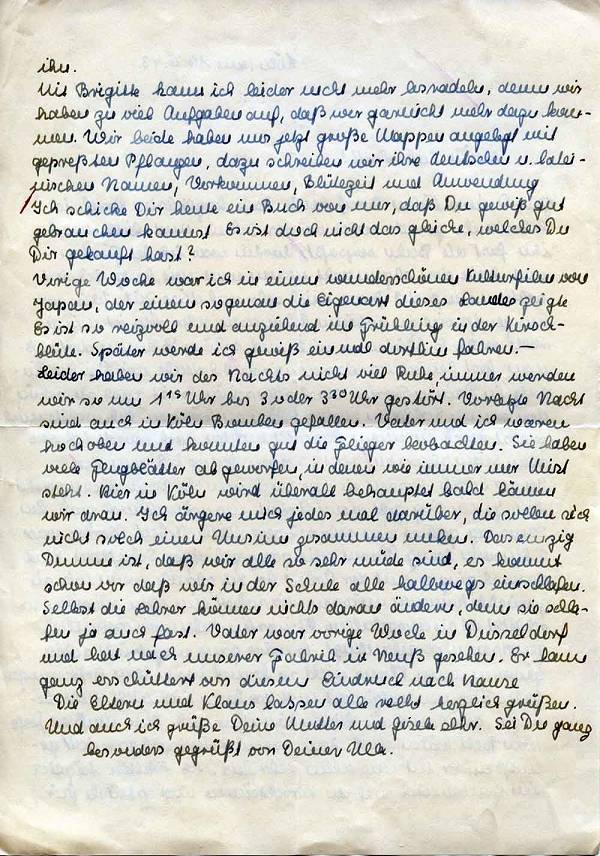 ihn.
Mit Brigitte kann ich leider nicht mehr losradeln, denn wir
haben zu viel Aufgaben auf, daß wir garnicht mehr dazu kom-
men. Wir beide haben uns jetzt große Mappen angelegt mit
gepreßten Pflanzen, dazu schreiben wir ihre deutschen u. latei-
nischen Namen, Vorkommen, Blütezeit und Anwendung
Ich schicke Dir heute ein Buch von mir, daß Du gewiß gut
gebrauchen kannst. Es ist doch nicht das gleiche, welches Du
Dir gekauft hast?
Vorige Woche war ich in einem wunderschönen Kulturfilm von
Japan, der einem so genau die Eigenart dieses Landes zeigte
Es ist so reizvoll und anziehend im Frühling in der Kirsch-
blüte. Später werde ich gewiß einmal dorthin fahren.—
Leider haben wir des Nachts nicht viel Ruhe, immer werden
wir so um 1¹⁵ Uhr bis 3 oder 3³⁰ Uhr gestört. Vorletzte Nacht
sind auch in Köln Bomben gefallen. Vater und ich waren
hoch oben und konnten gut die Flieger beobachten. Sie haben
viele Flugblätter abgeworfen, in denen wie immer nur Mist
steht. Hier in Köln wird überall behauptet bald kämen
wir dran. Ich ärgere mich jedes mal darüber, die sollen sich
nicht solch einen Unsinn zusammen unken. Das einzig
Dumme ist, daß wir alle so sehr müde sind, es kommt
schon vor daß wir in der Schule alle halbwegs einschlafen.
Selbst die Lehrer können nichts daran ändern, denn sie schla-
fen ja auch fast. Vater war vorige Woche in Düsseldorf
und hat nach unserer Fabrik in Neuß gesehen. Er kam
ganz erschüttert von diesem Eindruck nach Hause
Die Eltern und Klaus lassen alle recht herzlich grüßen.
Und auch ich grüße Deine Mutter und Gisela sehr. Sei Du ganz
besonders gegrüßt von Deiner Ulla.